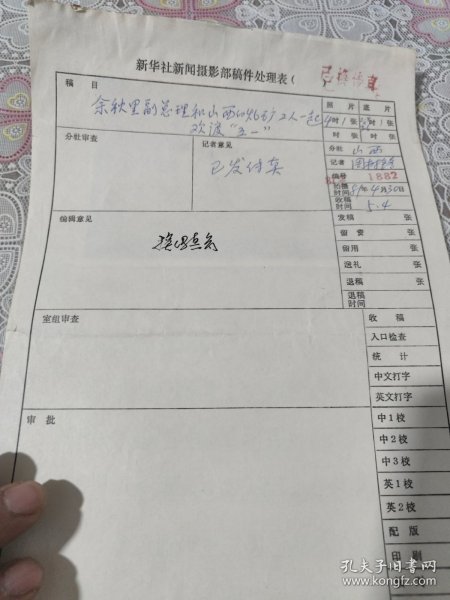 新华社新闻摄影部稿件处理表(
稿 目
余秋里副总理和山西煤矿工人一起
欢度“五一”
照 片 底 片
时 1 张 时 1 张
时 张 时 张
分社审查
记者意见
已发传真
分社 山西
记者
编号 1882
拍摄时间 81年4月30日
收稿时间 5.4
编辑意见
发稿 张
留资 张
留用 张
送礼 张
退稿 张
退稿时间
室组审查
收 稿
入口检查
统 计
中文打字
英文打字
审 批
中1校
中2校
中3校
英1校
英2校
配 版
印 刷
孔夫子旧书网
www.kongfz.com